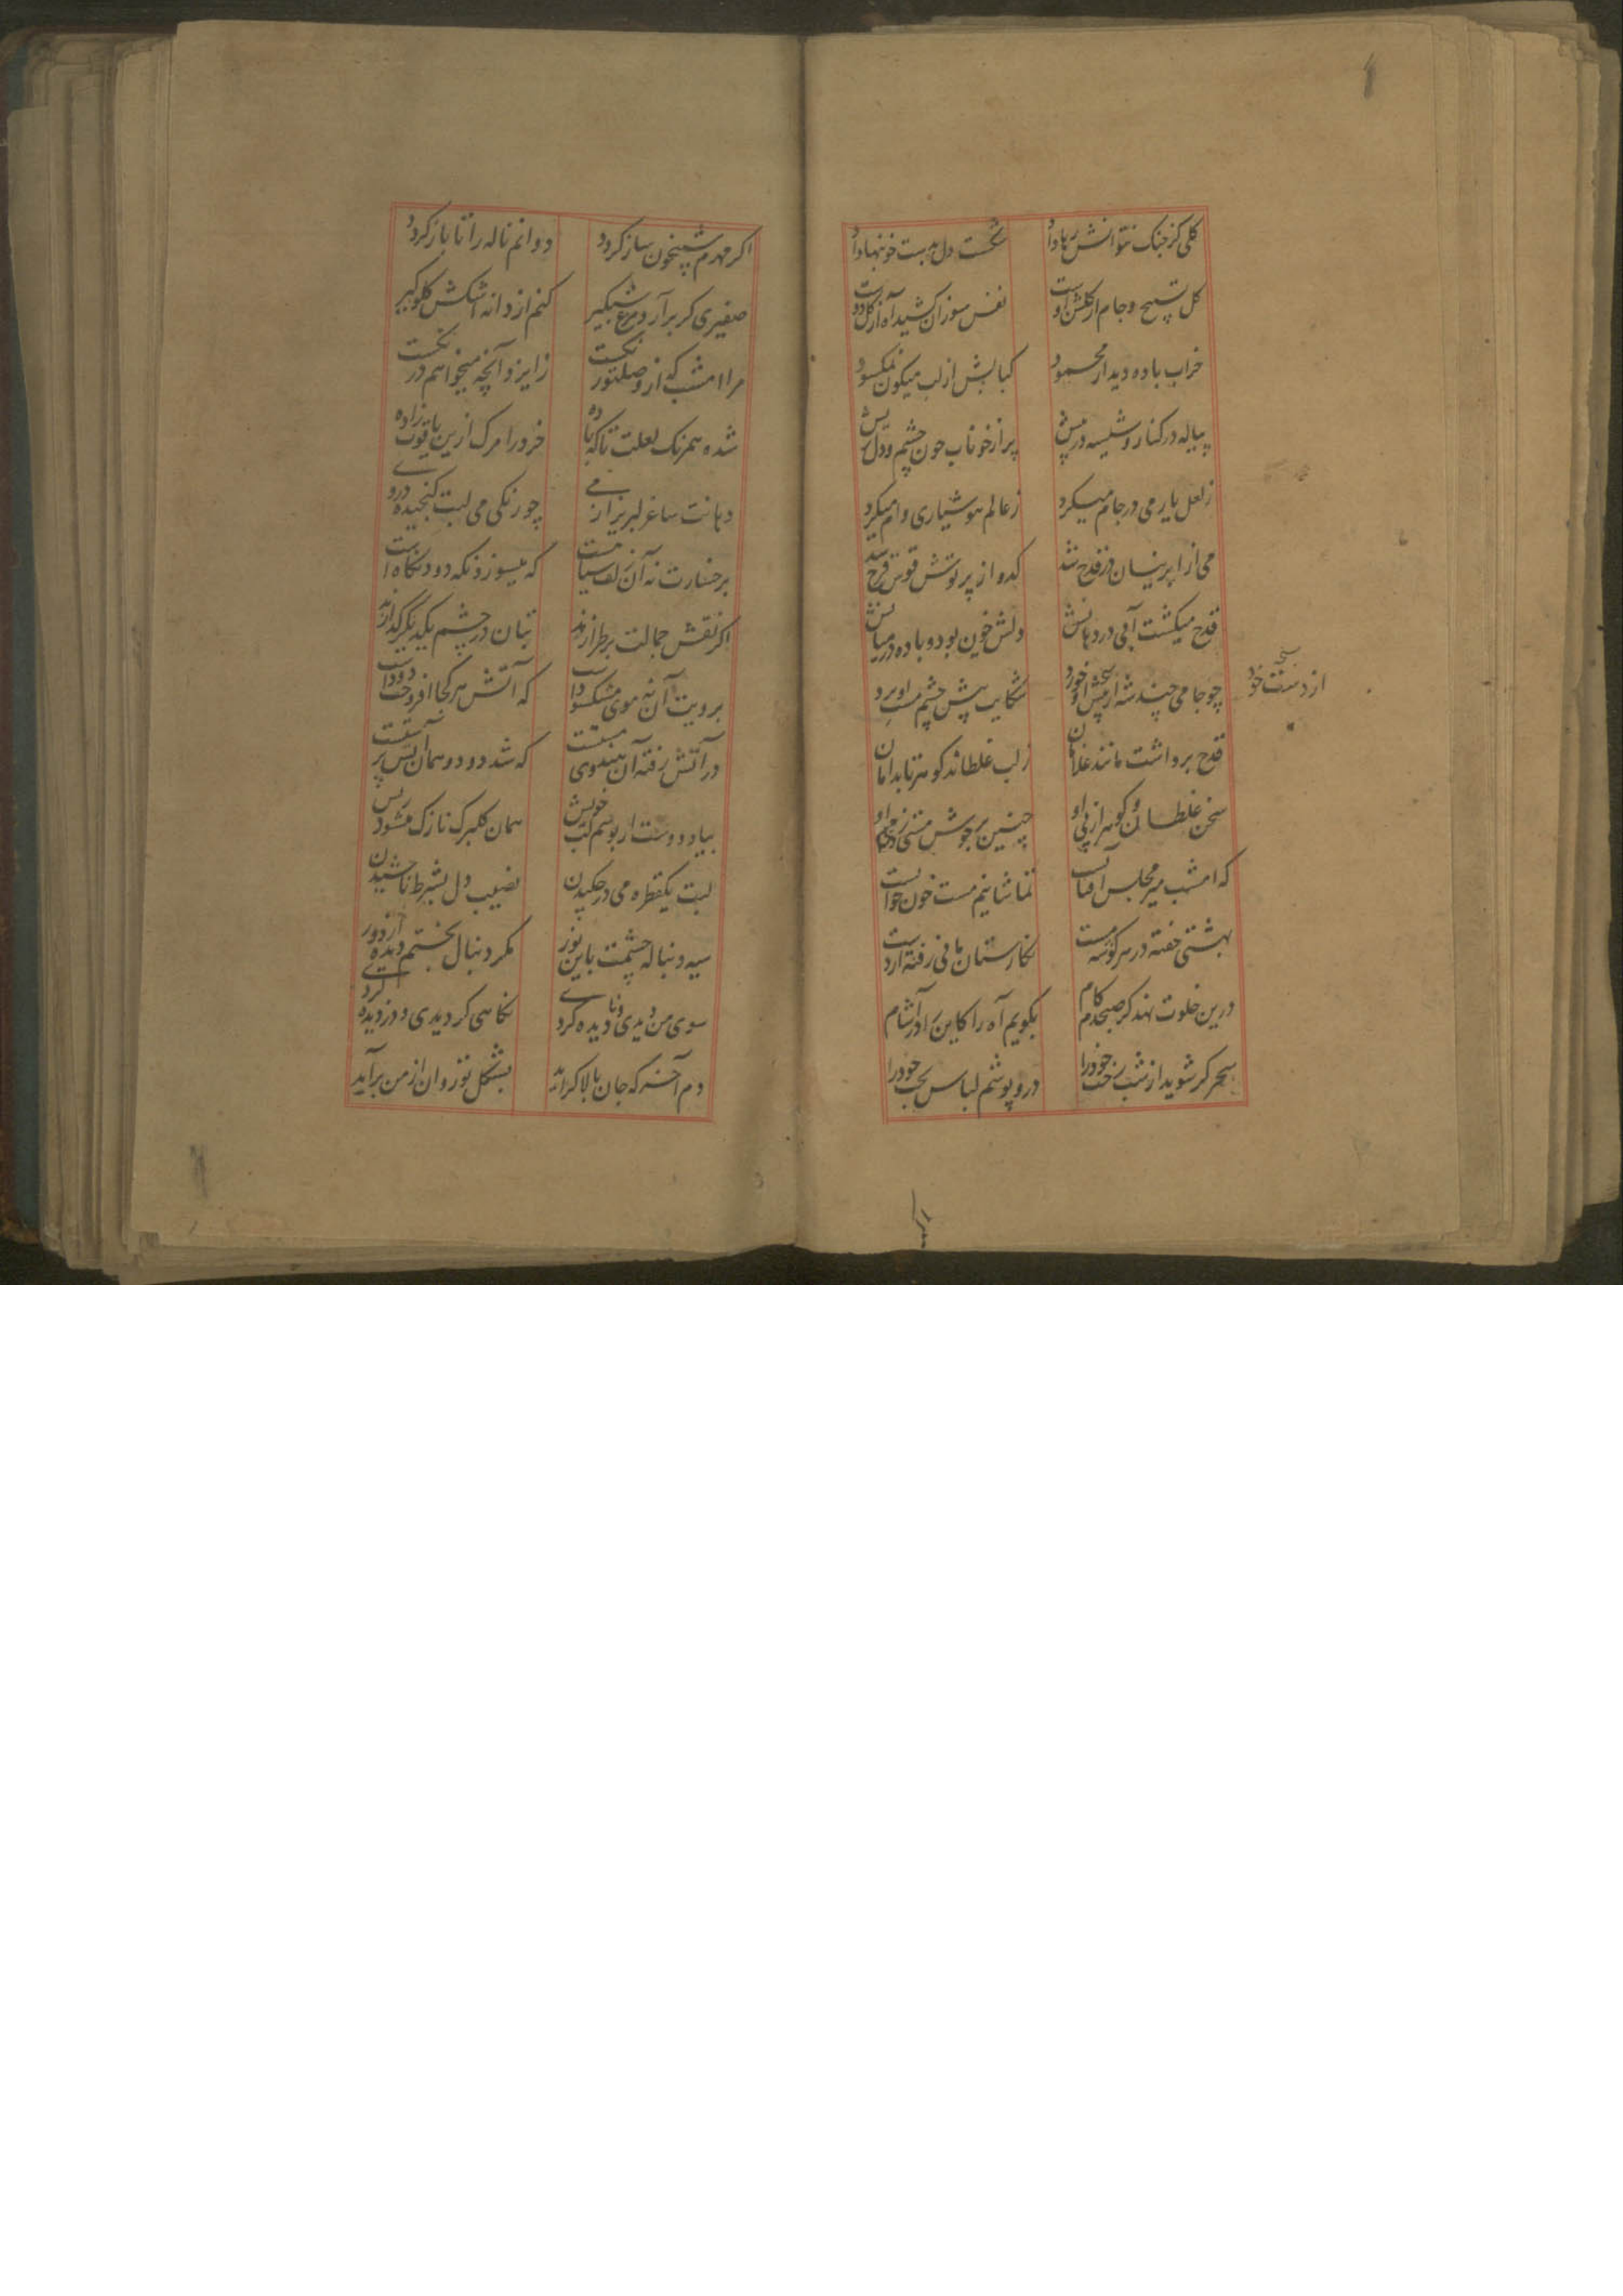 کلی کز جنک نتوانش رها داد شکست دل بدست خونبها داد
کل تسبیح و جام از کلشن اوست نفس سوزان کشید آه از کل دوست
خراب باده دیدار محمود کبابش از لب میکون نمکسود
پیاله در کنار و شیسه در پیش پر از خوناب چون چشم و دل ریش
ز لعل یار می در جام میکرد ز عالم هوشیاری وام میکرد
می از ابر نیسان در قدح شد کدو از پرتوش قوس قزح شد
قدح میکشت آبی در دهانش دلش خون بود و باده در میانش
چو جامی چند شه از پیش او خورد شکایت پیش چشم مست او برد
از دست خود
قدح برداشت مانند غلامان ز لب غلطاند کوهر تا بدامان
سخن غلطان و کوهر از پی او چنین بر جوش مستی زد می او
که امشب میر مجلس آفتابست تماشاییم مست خون خوابست
بهشتی خفته در هر کوشه مست نکارستان مانی رفته از دست
درین خلوت نهد کر صبحدم کام بکویم آه را کاین را در آشام
سحر کر شوید از شب رخت خود را درو پوشم لباس بخت خود را
اکر مهرم شبیخون ساز کردد دوانم ناله را تا باز کردد
صفیری کر برآرد مرغ شبکیر کنم از دانه اشکش کلوکیر
مرا امشب که از وصلت نکست ز ایزد آنچه میخواهم در نکست
شده همرنک لعلت تا که باده خرد را مرک ازین یاقوت زاده
دهانت ساغر لبریز از می چو رنکی می لبت کنجیده در وی
برخسارت نه آن زلف سیاهست که میسوزد نکه دود نکاه است
اکر نقش جمالت برطرازند بتان در چشم یکدیکر کدازند
برویت آن نه موی مشکسود است که آتش هر کجا افروخت دود است
در آتش رفته آن هندوی مستست که شد دود و همان آتش پرستست
بیاد دوست ار بوسم لب خویش همان کلبرک نازک میشود ریش
لبت یکقطره می در چکیدن نصیب دل بشرط ناچشیدن
سیه دنباله چشمت باین نور مکر دنبال بختم دیده از دور
سوی من دیدی و نادیده کردی نکاهی کردی و دزدیده کردی
دم آخر که جان بالا کراید بشکل تو روان از من برآید